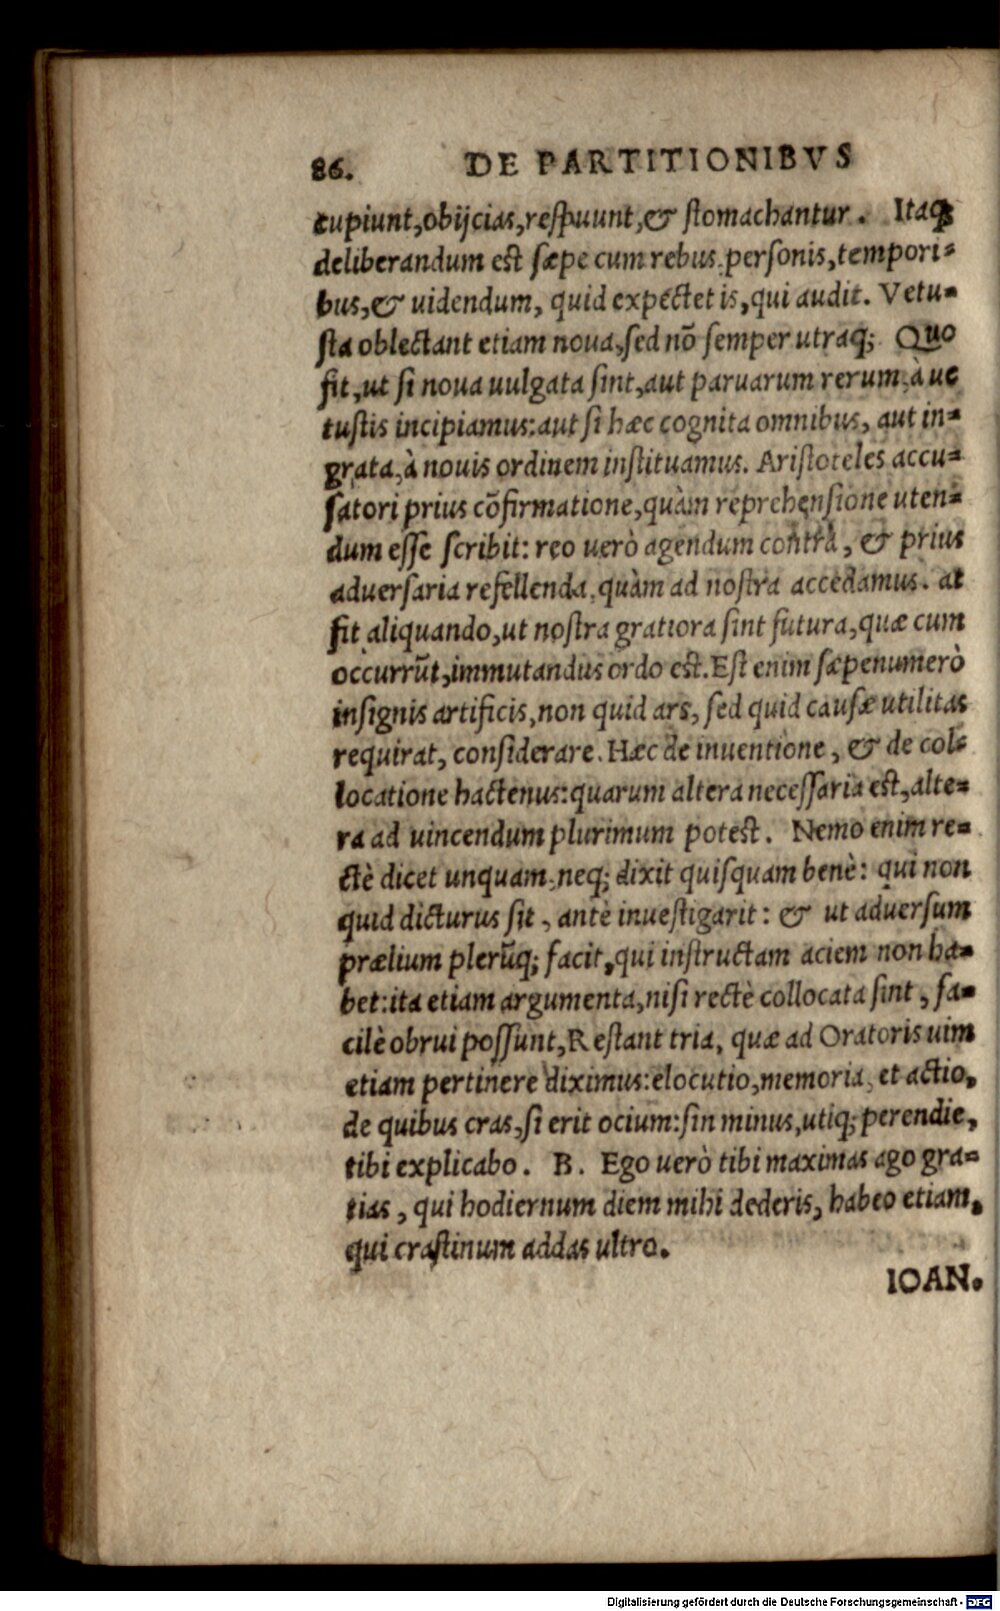 86. DE PARTITIONIBVS
cupiunt, obijcias, respuunt, & stomachantur. Itaq;
deliberandum est sæpe cum rebus, personis, tempori-
bus, & uidendum, quid expectet is, qui audit. Vetu-
sta oblectant etiam noua, sed nõ semper utraq; Quo
fit, ut si noua uulgata sint, aut paruarum rerum, à ue
tustis incipiamus: aut si hæc cognita omnibus, aut in-
grata, à nouis ordinem instituamus. Aristoteles accu-
satori prius cõfirmatione, quàm reprehensione uten-
dum esse scribit: reo uerò agendum contrà, & prius
aduersaria refellenda, quàm ad nostra accedamus. at
fit aliquando, ut nostra gratiora sint futura, quæ cum
occurrũt, immutandus ordo est. Est enim sæpenumerò
insignis artificis, non quid ars, sed quid causæ utilitas
requirat, considerare. Hæc de inuentione, & de col-
locatione hactenus: quarum altera necessaria est, alte-
ra ad uincendum plurimum potest. Nemo enim re-
ctè dicet unquam, neq; dixit quisquam benè: qui non
quid dicturus sit, antè inuestigarit: & ut aduersum
prælium plerũq; facit, qui instructam aciem non ha-
bet: ita etiam argumenta, nisi rectè collocata sint, fa-
cilè obrui possunt, Restant tria, quæ ad Oratoris uim
etiam pertinere diximus: elocutio, memoria, et actio,
de quibus cras, si erit ocium: sin minus, utiq; perendie,
tibi explicabo. B. Ego uerò tibi maximas ago gra-
tias, qui hodiernum diem mihi dederis, habeo etiam,
qui crastinum addas ultro.
IOAN.
Digitalisierung gefördert durch die Deutsche Forschungsgemeinschaft - DFG